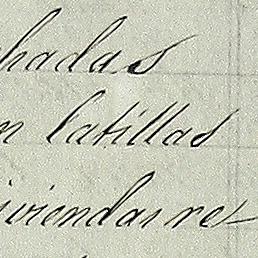 hadas
n latillas
iviendas res